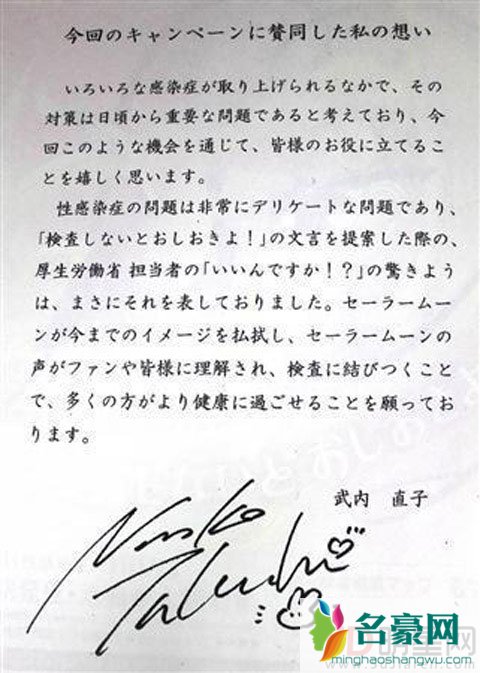 今回のキャンペーンに賛同した私の想い
いろいろな感染症が取り上げられるなかで、その
対策は日頃から重要な問題であると考えており、今
回このような機会を通じて、皆様のお役に立てるこ
とを嬉しく思います。
性感染症の問題は非常にデリケートな問題であり、
「検査しないとおしおきよ！」の文言を提案した際の、
厚生労働省 担当者の「いいんですか！？」の驚きよう
は、まさにそれを表しておりました。セーラームー
ンが今までのイメージを払拭し、セーラームーンの
声がファンや皆様に理解され、検査に結びつくこと
で、多くの方がより健康に過ごせることを願ってお
ります。
武内 直子
Naoko
Takeuchi
名豪网
minghaoshangwu.com